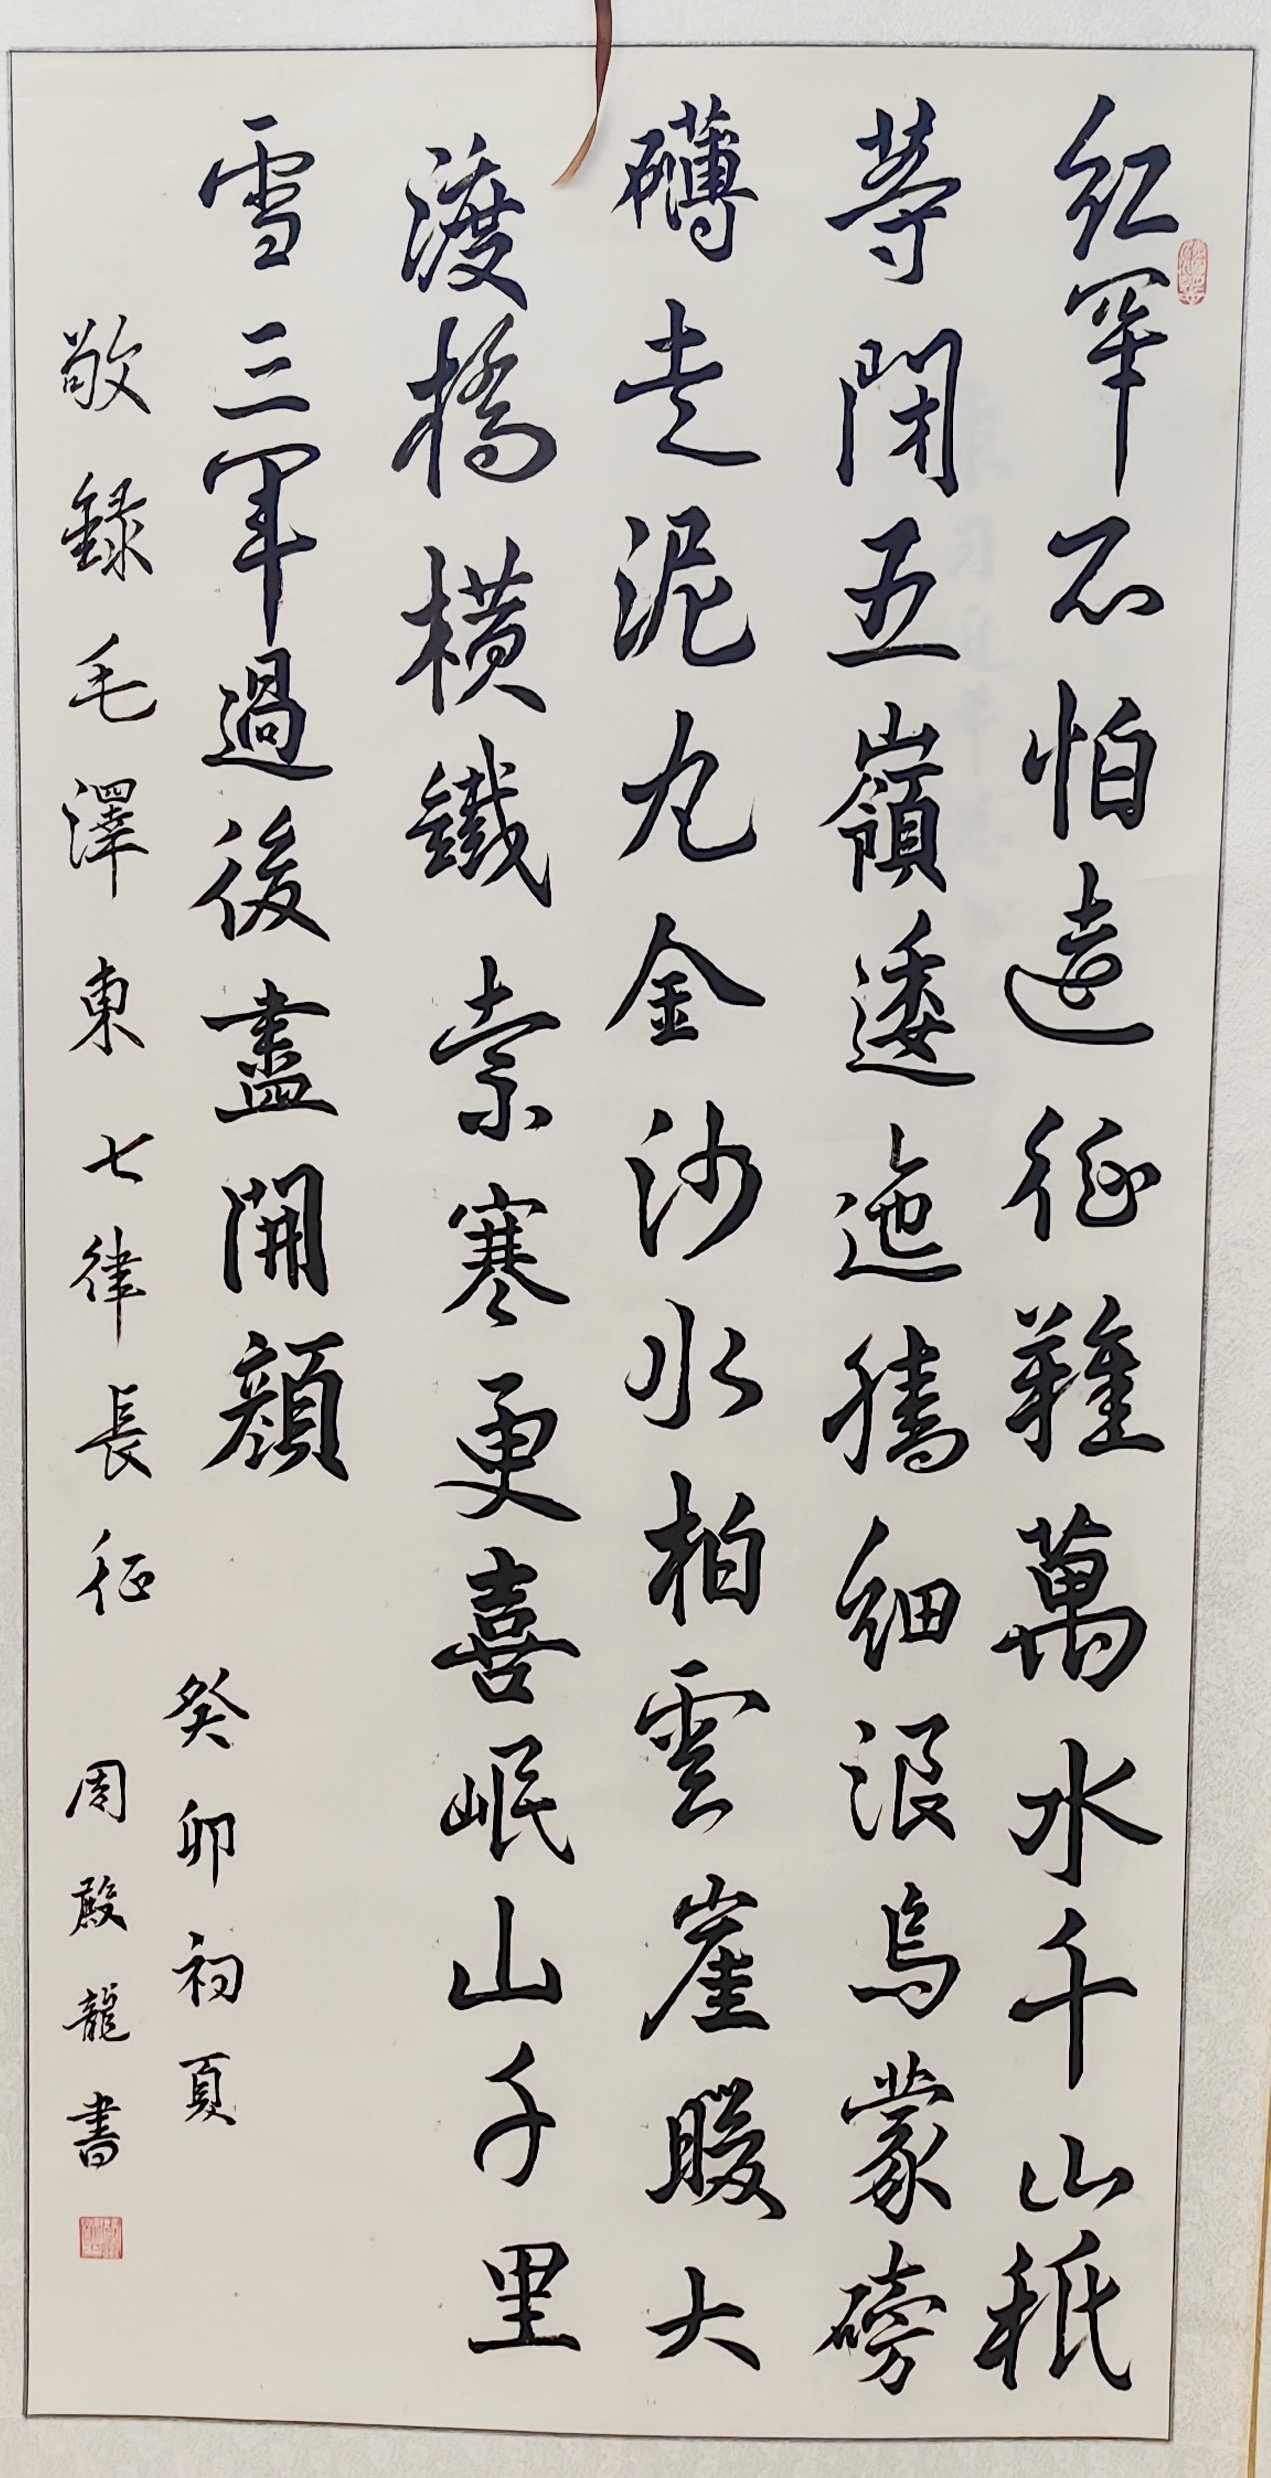 红軍不怕遠征難萬水千山秖
等閑五嶺逶迤騰細浪烏蒙磅
礴走泥丸金沙水拍雲崖暖大
渡橋橫鐵索寒更喜岷山千里
雪三軍過後盡開顏
癸卯初夏
敬録毛澤東七律長征
周殿龍書